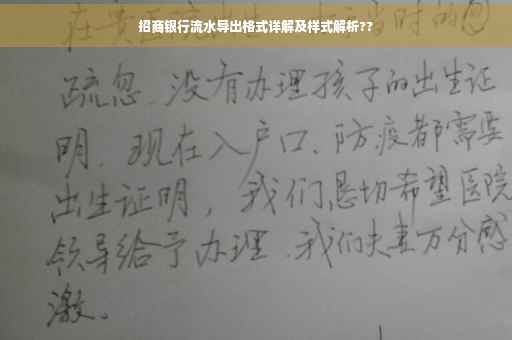 招商银行流水导出格式详解及样式解析??
疏忽.没有办理孩子的出生证
明.现在入户口、防疫都需要
出生证明，我们恳切希望医院
领导给予办理.我们夫妻万分感
激。